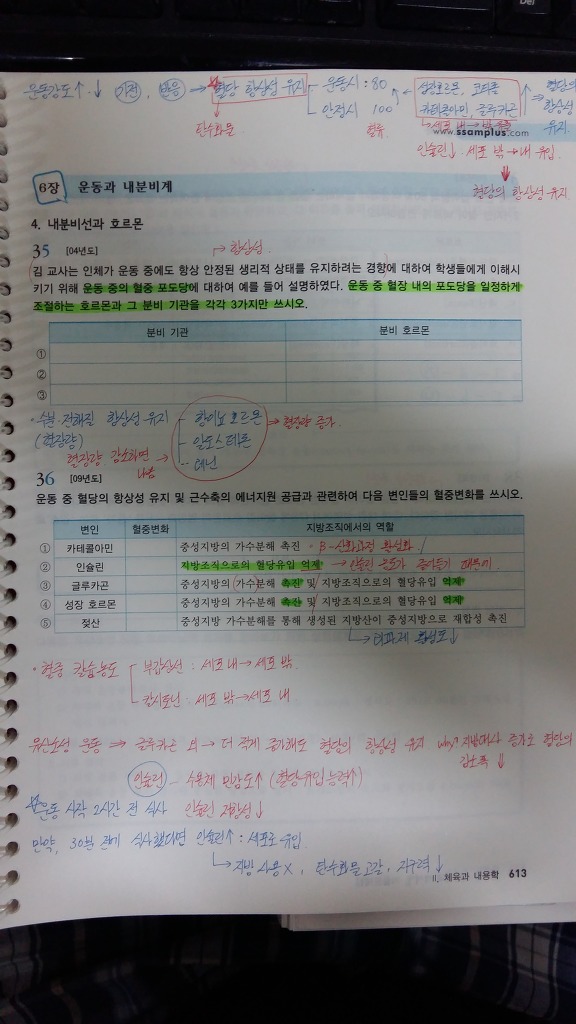 운동강도↑·↓ 기전, 반응 ⇒ 혈당 항상성 유지 운동시 : 80
안정시 100
성장호르몬, 코티졸
카테콜아민, 글루카곤
⇒ 혈당의 항상성 유지.
탄수화물
혈류.
www.ssamplus.com
인슐린↓ 세포 밖→내 유입.
혈당의 항상성 유지
6장 운동과 내분비계
4. 내분비선과 호르몬
35 [04년도] → 항상성.
김 교사는 인체가 운동 중에도 항상 안정된 생리적 상태를 유지하려는 경향에 대하여 학생들에게 이해시
키기 위해 운동 중의 혈중 포도당에 대하여 예를 들어 설명하였다. 운동 중 혈장 내의 포도당을 일정하게
조절하는 호르몬과 그 분비 기관을 각각 3가지만 쓰시오.
분비 기관 분비 호르몬
①
②
③
· 수분·전해질 항상성 유지
(혈장량)
항이뇨 호르몬
알도스테론
레닌
⇒ 혈장량 증가.
혈장량 감소하면 →
36 [09년도]
운동 중 혈당의 항상성 유지 및 근수축의 에너지원 공급과 관련하여 다음 변인들의 혈중변화를 쓰시오.
변인 혈중변화 지방조직에서의 역할
① 카테콜아민 중성지방의 가수분해 촉진 · β-산화과정 활성화!
② 인슐린 지방조직으로의 혈당유입 억제 → 인슐린 농도가 줄어들기 때문에.
③ 글루카곤 중성지방의 가수분해 촉진 및 지방조직으로의 혈당유입 억제
④ 성장 호르몬 중성지방의 가수분해 촉진 및 지방조직으로의 혈당유입 억제
⑤ 젖산 중성지방 가수분해를 통해 생성된 지방산이 중성지방으로 재합성 촉진
활성도↓
· 혈중 칼슘농도
부갑상선 : 세포 내 → 세포 밖.
칼시토닌 : 세포 밖 → 세포 내
유산소성 운동 ⇒ 글루카곤 외 → 더 적게 증가해도 혈당의 항상성 유지 why? 지방대사 증가로 혈당의
감소폭 ↓
인슐린 - 수용체 민감도↑ (혈당유입 능력↑)
인슐린 저항성↓
운동 시작 2시간 전 식사
만약, 30분 전에 식사했다면 인슐린↑ : 세포로 유입.
→ 지방 사용 X, 탄수화물 고갈, 지구력↓
II. 체육과 내용학 613